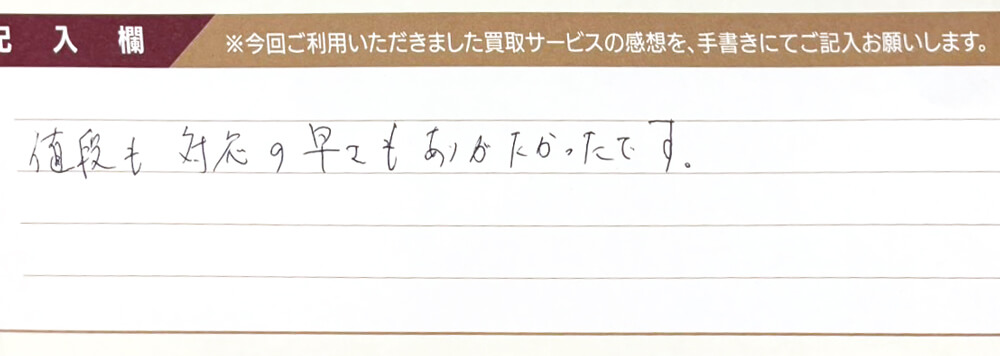 記入欄
※今回ご利用いただきました買取サービスの感想を、手書きにてご記入お願いします。
値段も 対応の早さもありがたかったです。